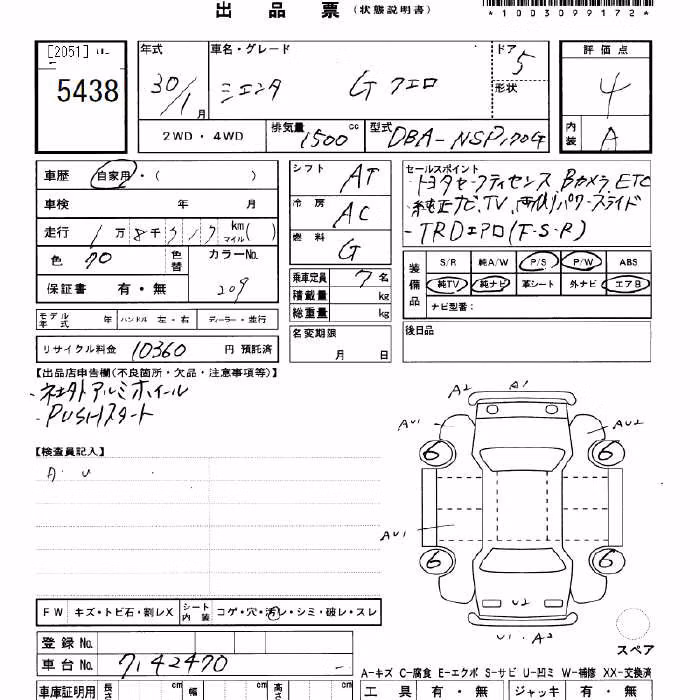 出品票(状態説明書)
*1003099172*
[2051]
5438
年式 30/1月
車名・グレード シエンタ G クエロ
ドア 5
形状
評価点 4
内装 A
2WD・4WD
排気量 1500cc
型式 DBA-NSP170G
車歴 自家用・( )
車検 年 月
走行 1万8千717 km マイル( )
色 クロ 色替
カラーNo. 209
保証書 有・無
シフト AT
冷房 AC
燃料 G
乗車定員 7名
積載量 kg
総重量 kg
名変期限 月 日
セールスポイント
・トヨタセーフティセンス、Bカメラ、ETC
・純正ナビ、TV、両側パワースライド
・TRDエアロ(F-S-R)
装備品
S/R 純A/W P/S P/W ABS
純TV 純ナビ 革シート 外ナビ エアB
ナビ型番:
後日品
モデル年式 年 ハンドル 左・右 ディーラー・並行
リサイクル料金 10360 円 預託済
【出品店申告欄(不良箇所・欠品・注意事項等)】
・社外アルミホイール
・PUSHスタート
【検査員記入】
A・U
A2 A1
AU1 AU2
6 6
AU1
6 6
U2
U1・A2
スペア
FW キズ・トビ石・割レX
シート内装 コゲ・穴・汚レ・シミ・破レ・スレ
登録No.
車台No. 7142470
A-キズ C-腐食 E-エクボ S-サビ U-凹ミ W-補修 XX-交換済
車庫証明用 長さ cm 幅 cm 高さ cm
工具 有・無 ジャッキ 有・無